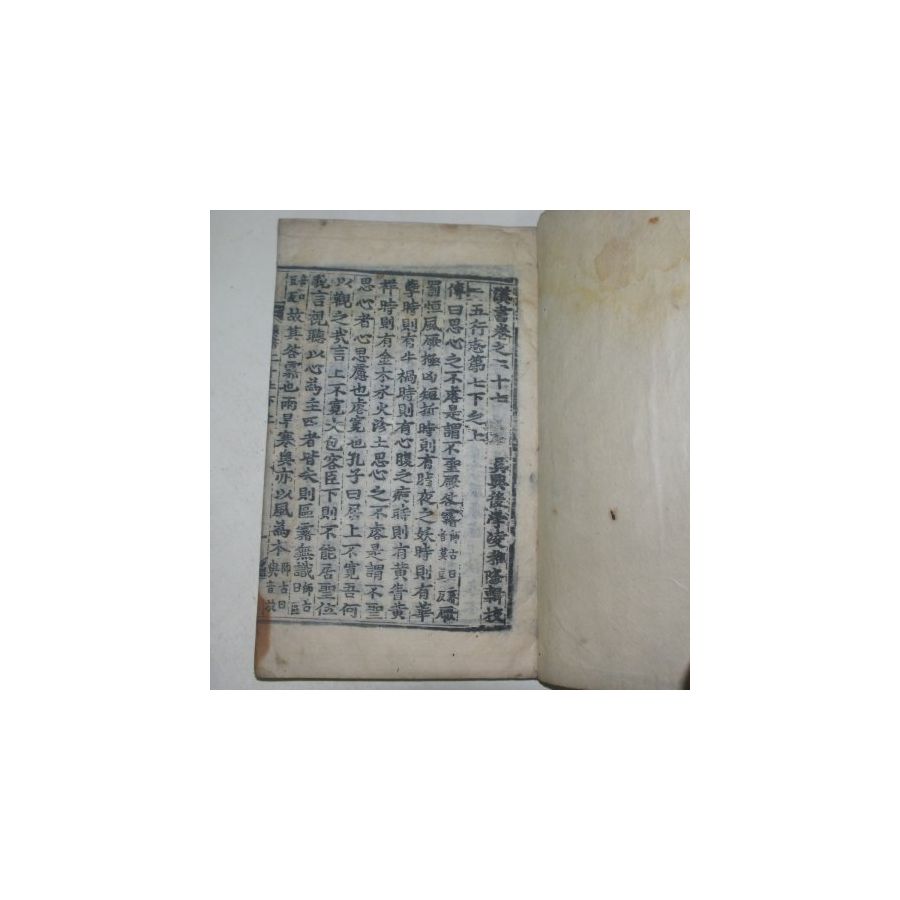 漢書卷之二十七 吳興後學凌稚隆輯校
五行志第七下之上
傳曰思心之不睿是謂不聖厥咎霿師古曰霿音莫豆反厥
罰恒風厥極凶短折時則有脂夜之妖時則有華
孽時則有牛禍時則有心腹之痾時則有黃眚黃
祥時則有金木水火沴土思心之不睿是謂不聖
思心者心思慮也睿寬也孔子曰居上不寬吾何
以觀之哉言上不寬大包容臣下則不能居聖位
貌言視聽以心為主四者皆失則區霿無識師古曰區
音口豆反故其咎霿也雨旱寒奧亦以風為本師古曰奧音於